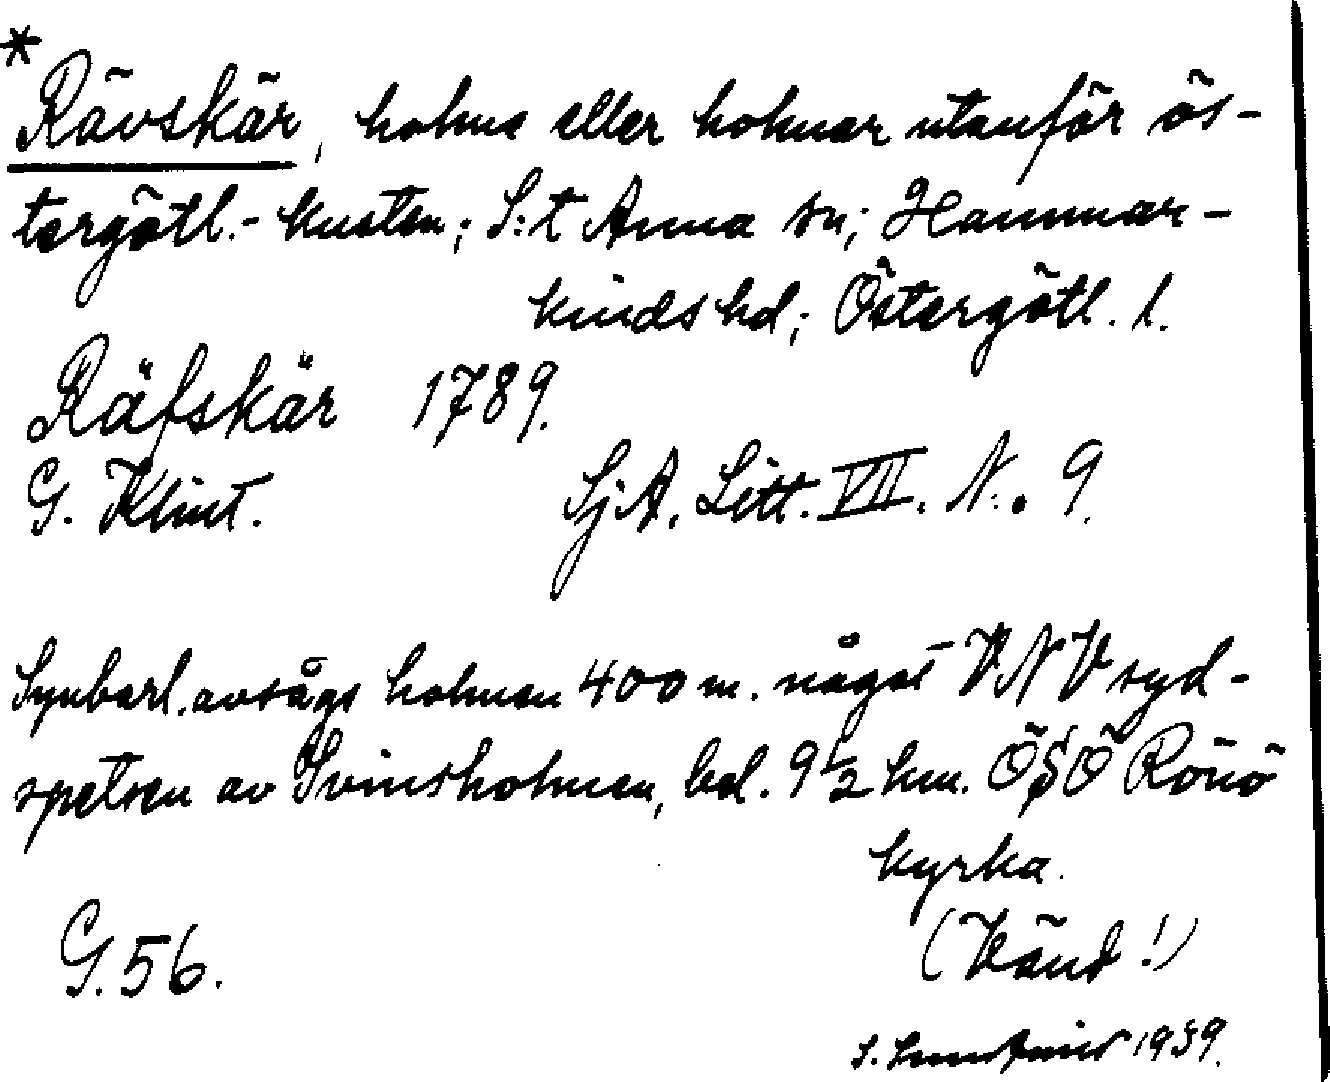 *
Rävskär, holme eller holmar utanför ös-
tergötl.- kusten; S:t Anna sn; Hammar-
kinds hd; Östergötl. l.
Räfskär 1789.
G. Klint. SjA. Litt. VII. N:. 9.
Synbarl. avsågs holmen 400 m. något VNV syd-
spetsen av Svinsholmen, bel. 9 1/2 km. ÖSÖ Rönö
kyrka.
(Vänd!)
G. 56.
S. 1939.